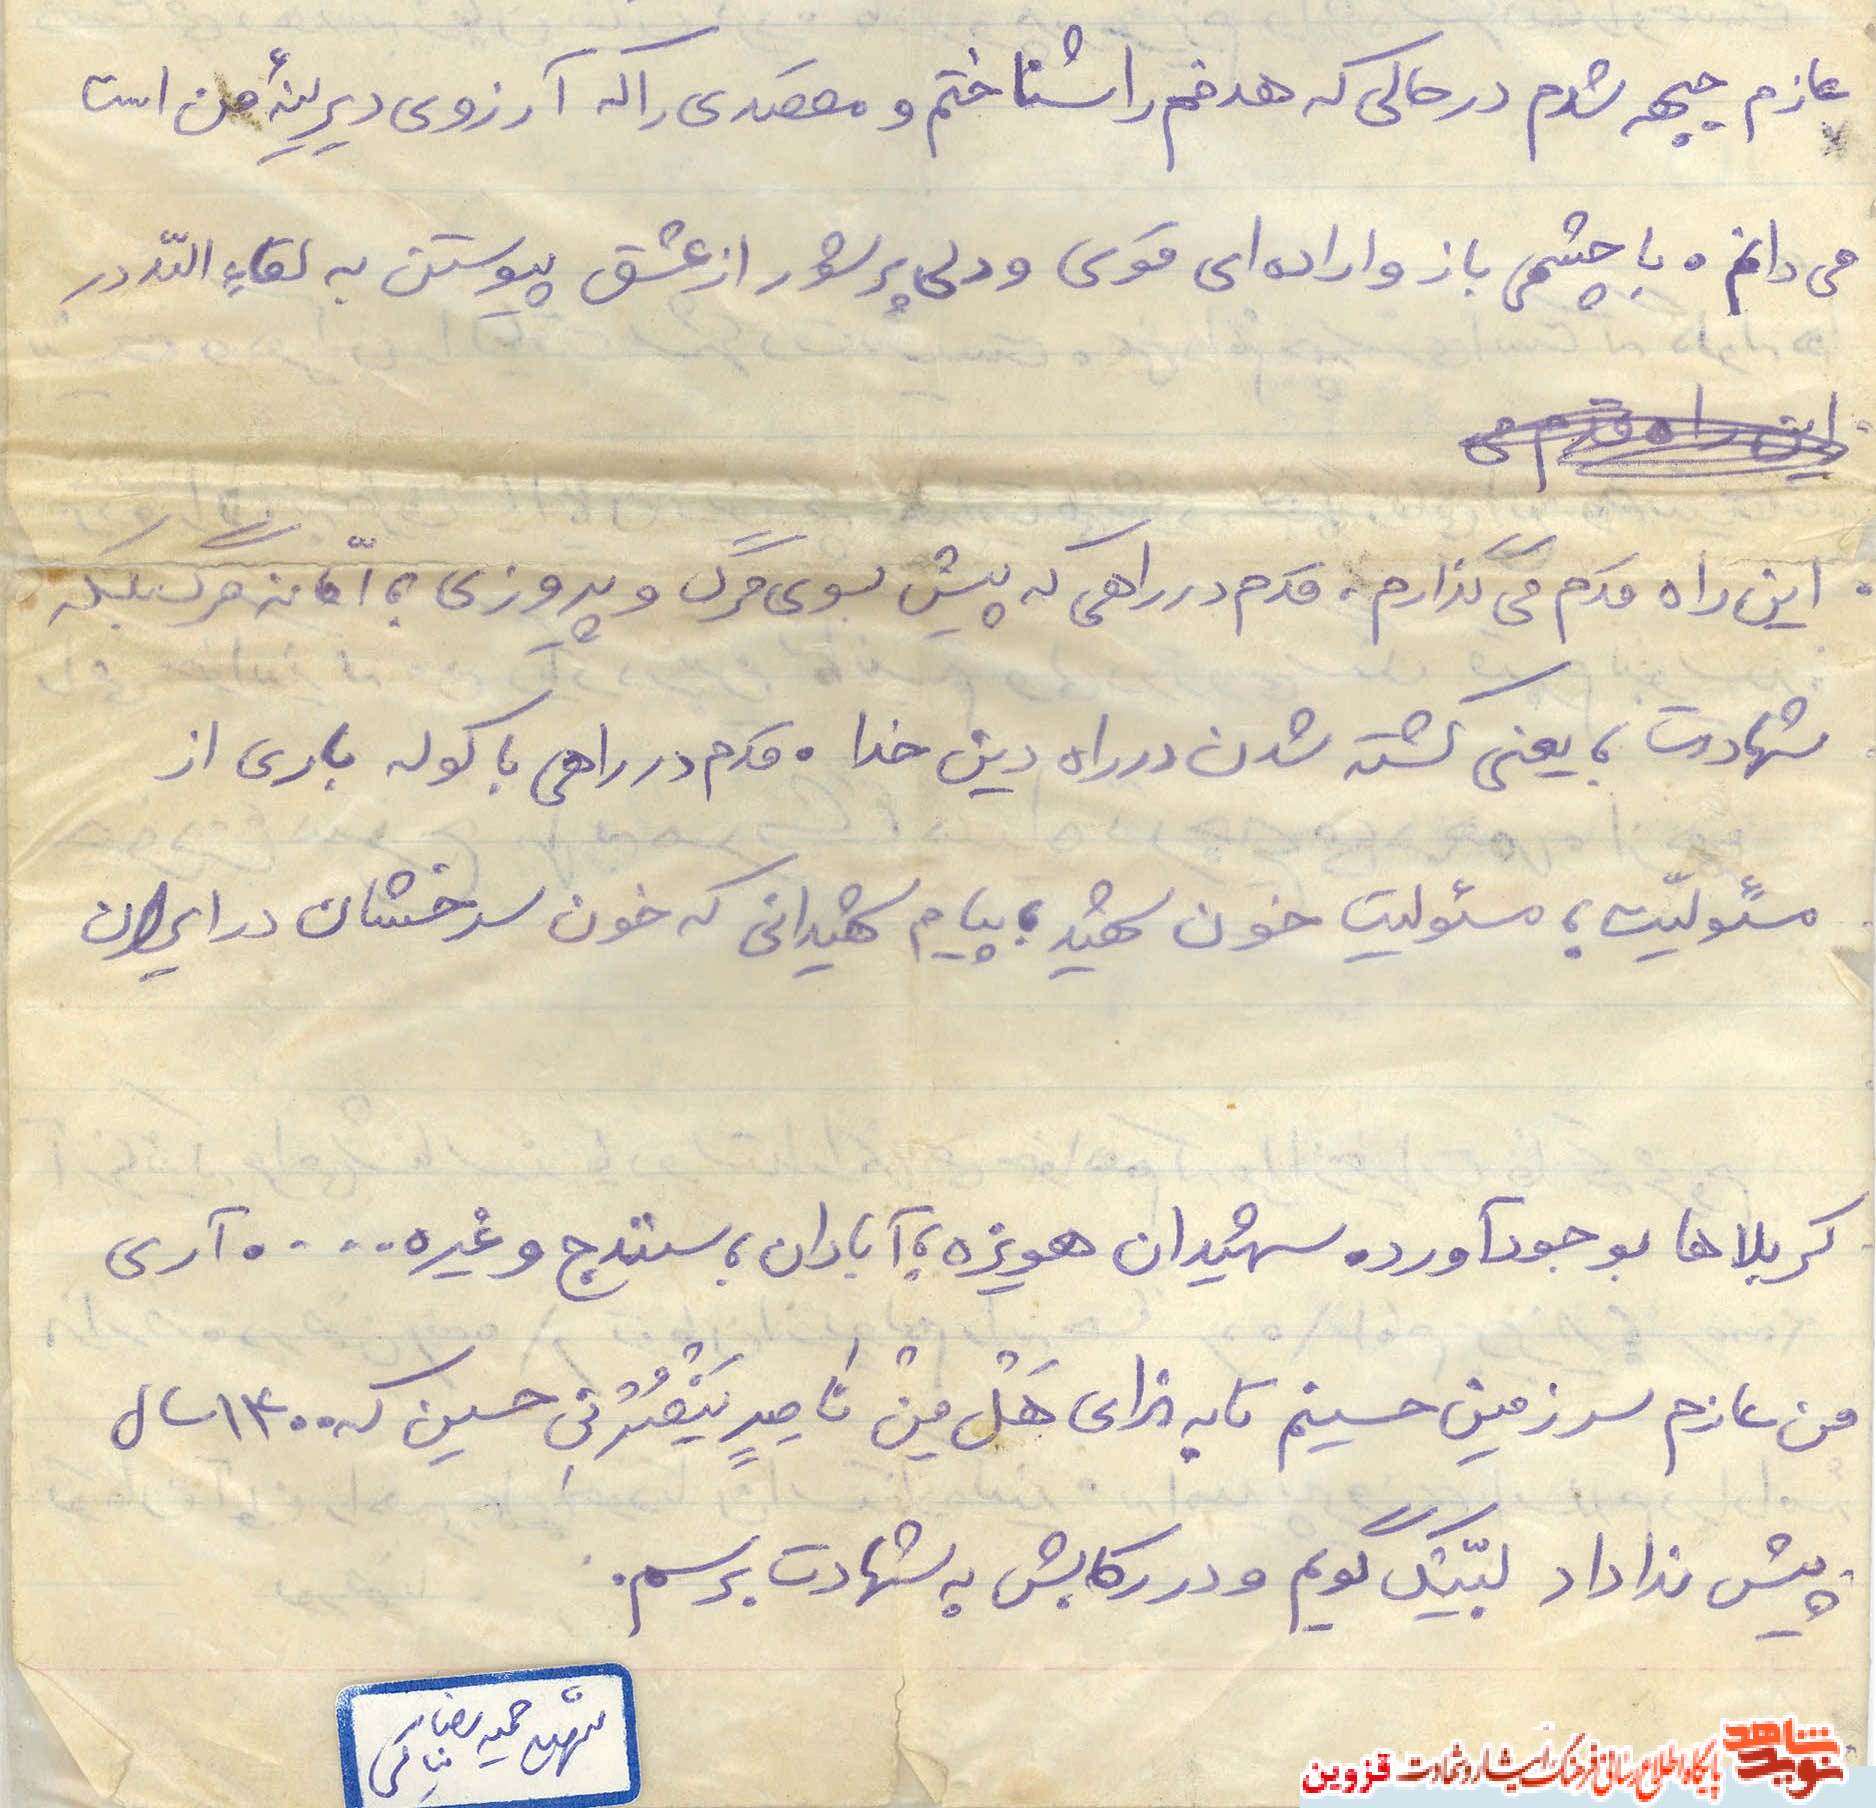 عازم جبهه شدم درحالی که هدفم را شناختم و مقصدی را که آرزوی دیرینهٔ من است
می دانم . با چشمی باز و اراده ای قوی و دلی پر شور از عشق پیوستن به لقاءِ اللّه در
این راه قدم می
این راه قدم می گذارم ، قدم در راهی که پیش بسوی مرگ و پیروزی ، امّا نه مرگ بلکه
شهادت ، یعنی کشته شدن در راه دین خدا . قدم در راهی با کوله باری از
مسئولیّت ، مسئولیت خون شهید ، پیام شهیدانی که خون سرخشان در ایران
کربلاها بوجود آورده شهیدان هویزه ، آبادان ، سنندج و غیره ..... آری
من عازم سرزمین حسینم تا به ندای هَلْ مِنْ ناصِرٍ یَنْصُرْنی حسین که ۱۴۰۰ سال
پیش ندا داد لبّیک گویم و در رکابش به شهادت برسم .
شهید حمیدرضا
نوید شاهد
پایگاه اطلاع رسانی فرهنگ ایثار و شهادت قزوین